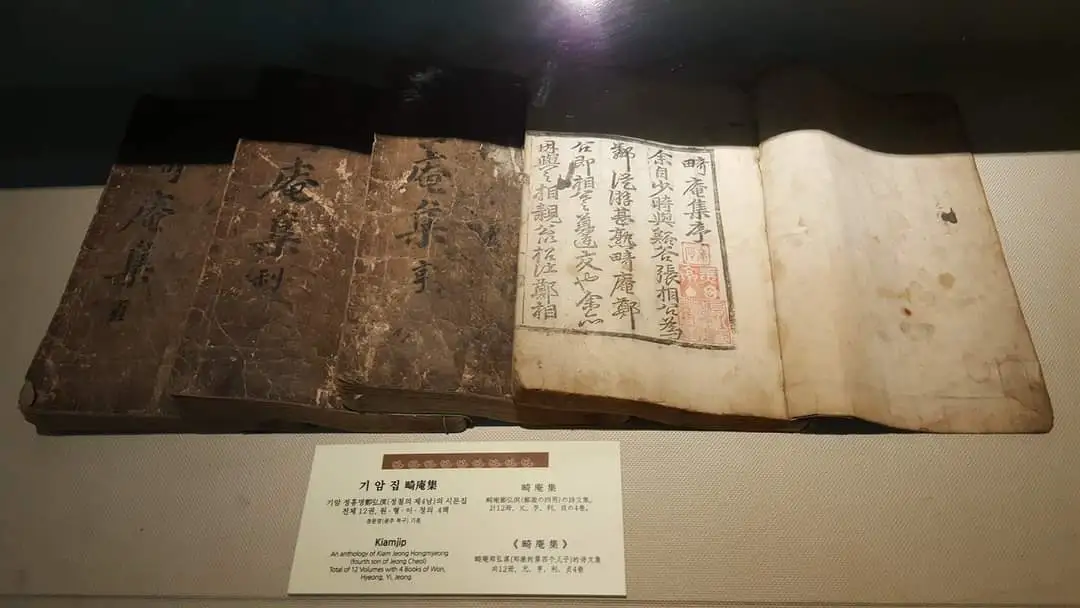 庵集
庵集 利
庵集 亨
畸庵集序
余自少時與谿谷張相公爲
游甚熟畸庵鄭
公即相
相親公松江鄭相
기 암 집 畸庵集
기암 정홍명鄭弘溟(정철의 제4남)의 시문집
전체 12권, 원·형·이·정의 4책
(광주 북구)
Kiamjip
An anthology of Kiam Jeong Hongmyeong
(fourth son of Jeong Cheol)
Total of 12 Volumes with 4 Books of Won,
Hyeong, Yi, Jeong
畸 庵 集
畸庵鄭弘溟(鄭澈の四男)の詩文集。
計12冊、元、亨、利、貞の4巻。
《 畸庵集 》
畸庵郑弘溟(郑澈的第四个儿子)的诗文集
12册, 元、亨、利、贞4卷